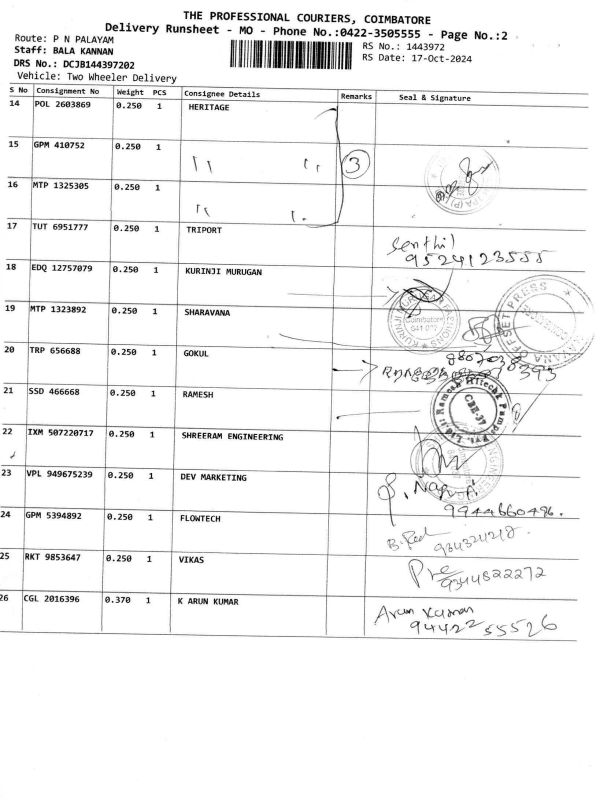 THE PROFESSIONAL COURIERS, COIMBATORE
Delivery Runsheet - MO - Phone No.:0422-3505555 - Page No.:2
Route: P N PALAYAM
RS No.: 1443972
Staff: BALA KANNAN
RS Date: 17-Oct-2024
DRS No.: DCJB144397202
Vehicle: Two Wheeler Delivery
S No Consignment No Weight PCS Consignee Details Remarks Seal & Signature
14 POL 2603869 0.250 1 HERITAGE
15 GPM 410752 0.250 1 " " 3
16 MTP 1325305 0.250 1 " "
17 TUT 6951777 0.250 1 TRIPORT Senthil
9524123555
18 EDQ 12757079 0.250 1 KURINJI MURUGAN
19 MTP 1323892 0.250 1 SHARAVANA Coimbatore OFFSET PRESS
20 TRP 656688 0.250 1 GOKUL
21 SSD 466668 0.250 1 RAMESH Ramesh Hitech Pumps Pvt. Ltd. CBE-37
22 IXM 507220717 0.250 1 SHREERAM ENGINEERING
23 VPL 949675239 0.250 1 DEV MARKETING
9944660496.
24 GPM 5394892 0.250 1 FLOWTECH
25 RKT 9853647 0.250 1 VIKAS
9344822272
26 CGL 2016396 0.370 1 K ARUN KUMAR Arun Kumar
9442255526